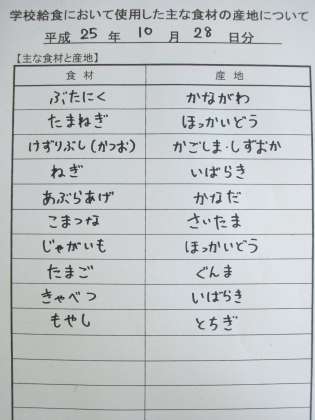 学校給食において使用した主な食材の産地について
平成 25 年 10 月 28 日分
【主な食材と産地】
食材 産地
ぶたにく かながわ
たまねぎ ほっかいどう
けずりぶし(かつお) かごしま・しずおか
ねぎ いばらき
あぶらあげ かなだ
こまつな さいたま
じゃがいも ほっかいどう
たまご ぐんま
きゃべつ いばらき
もやし とちぎ